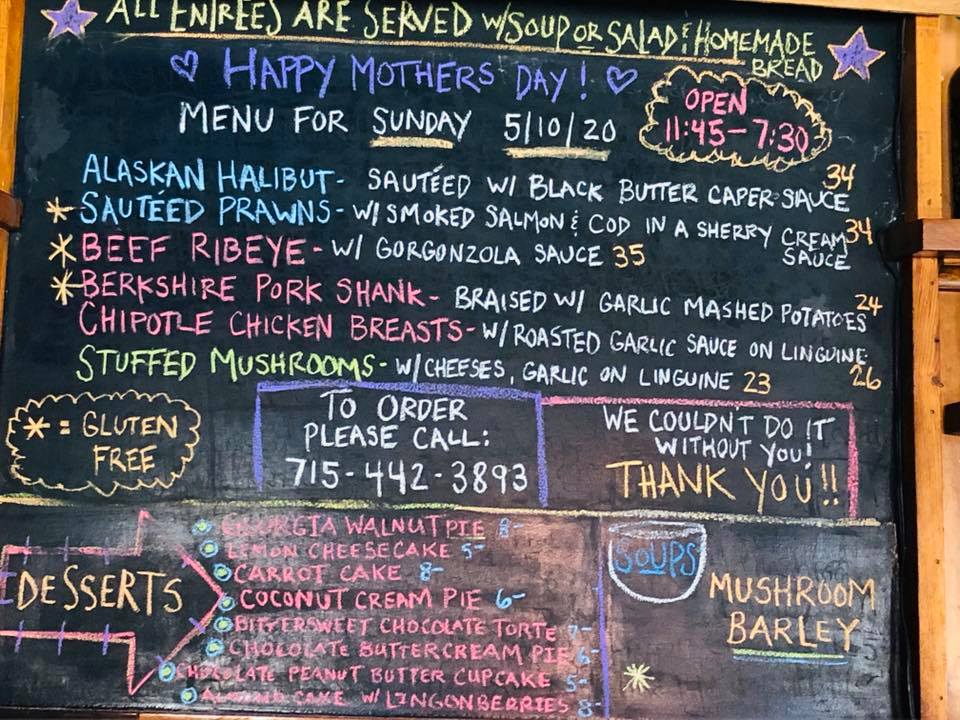 ALL ENTREÉS ARE SERVED W/SOUP OR SALAD & HOMEMADE
BREAD
HAPPY MOTHERS DAY!
MENU FOR SUNDAY 5/10/20
OPEN
11:45-7:30
ALASKAN HALIBUT- SAUTÉED W/ BLACK BUTTER CAPER SAUCE 34
* SAUTÉED PRAWNS- W/ SMOKED SALMON & COD IN A SHERRY CREAM 34
SAUCE
* BEEF RIBEYE- W/ GORGONZOLA SAUCE 35
* BERKSHIRE PORK SHANK- BRAISED W/ GARLIC MASHED POTATOES 24
CHIPOTLE CHICKEN BREASTS- W/ ROASTED GARLIC SAUCE ON LINGUINE 26
STUFFED MUSHROOMS- W/CHEESES, GARLIC ON LINGUINE 23
* = GLUTEN
FREE
TO ORDER
PLEASE CALL:
715-442-3893
WE COULDN'T DO IT
WITHOUT YOU!
THANK YOU!!
DESSERTS
GEORGIA WALNUT PIE 8-
LEMON CHEESECAKE 5-
CARROT CAKE 8-
COCONUT CREAM PIE 6-
BITTERSWEET CHOCOLATE TORTE 7-
CHOCOLATE BUTTERCREAM PIE 6-
CHOCOLATE PEANUT BUTTER CUPCAKE 5-
ALMOND CAKE W/ LINGONBERRIES 8-
SOUPS
MUSHROOM
BARLEY
*